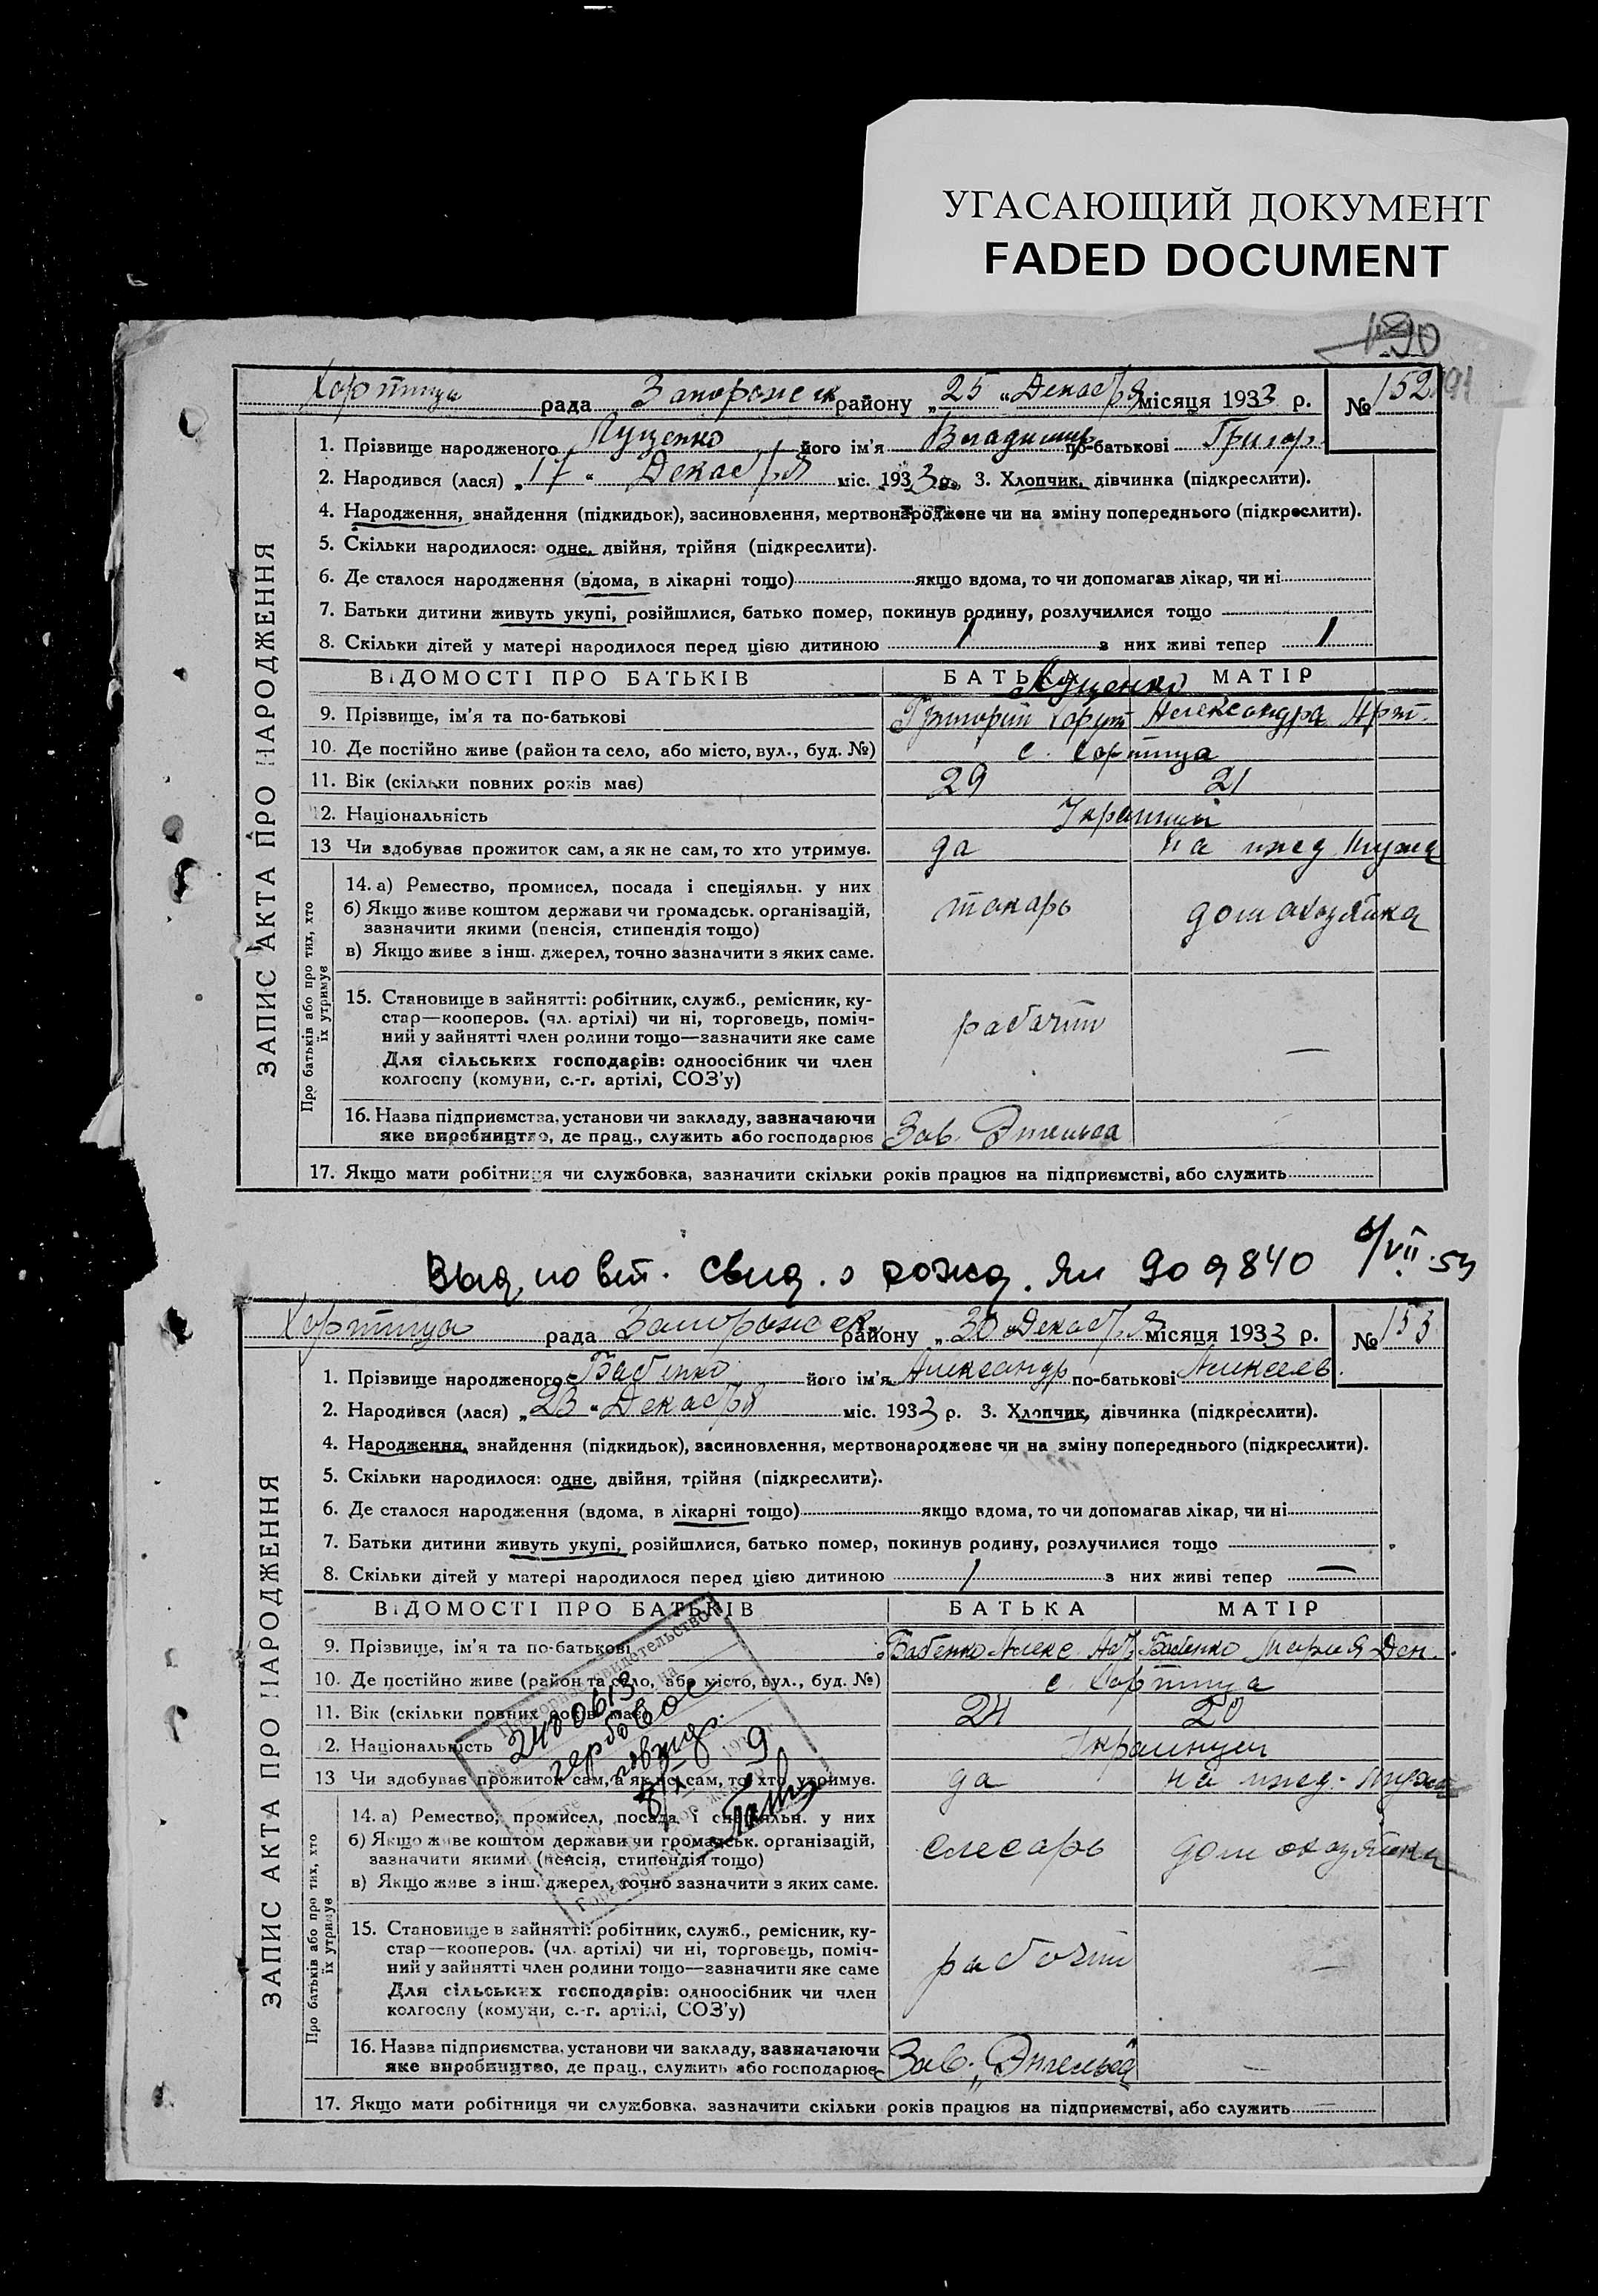 УГАСАЮЩИЙ ДОКУМЕНТ
FADED DOCUMENT
190
Хортица рада Запорожск району „25“ Декабря місяця 1933 р. № 152
ЗАПИС АКТА ПРО НАРОДЖЕННЯ
1. Прізвище народженого його ім'я Владимир по-батькові Григор.
2. Народився (лася) „17“ Декабря міс. 1933 р. 3. Хлопчик, дівчинка (підкреслити).
4. Народження, знайдення (підкидьок), засиновлення, мертвонароджене чи на зміну попереднього (підкреслити).
5. Скільки народилося: одне, двійня, трійня (підкреслити).
6. Де сталося народження (вдома, в лікарні тощо) якщо вдома, то чи допомагав лікар, чи ні
7. Батьки дитини живуть укупі, розійшлися, батько помер, покинув родину, розлучилися тощо
8. Скільки дітей у матері народилося перед цією дитиною 1 з них живі тепер 1
ВІДОМОСТІ ПРО БАТЬКІВ БАТЬКА МАТІР
9. Прізвище, ім'я та по-батькові Григорий Александра
10. Де постійно живе (район та село, або місто, вул., буд. №) с. Хортица
11. Вік (скільки повних років має) 29 21
12. Національність Украинцы
13 Чи здобував прожиток сам, а як не сам, то хто утримує. да на ижд мужа
Про батьків або про тих, хто їх утримує
14. а) Ремество, промисел, посада і спеціяльн. у них
б) Якщо живе коштом держави чи громадськ. організацій,
зазначити якими (пенсія, стипендія тощо)
в) Якщо живе з інш. джерел, точно зазначити з яких саме.
токарь домохозяйка
15. Становище в зайнятті: робітник, служб., ремісник, ку-
стар—кооперов. (чл. артілі) чи ні, торговець, поміч-
ний у зайнятті член родини тощо—зазначити яке саме
Для сільських господарів: одноосібник чи член
колгоспу (комуни, с.-г. артілі, СОЗ'у)
рабочий —
16. Назва підприємства, установи чи закладу, зазначаючи
яке виробництво, де прац., служить або господарює Зав. Энгельса
17. Якщо мати робітниця чи службовка, зазначити скільки років працює на підприємстві, або служить
Выд. повт. свид. о рожд. 909840 6/VII.54
Хортица рада Запорожск району „30“ Декабря місяця 1933 р. № 153
ЗАПИС АКТА ПРО НАРОДЖЕННЯ
1. Прізвище народженого Бабенко його ім'я Александр по-батькові Алексеев.
2. Народився (лася) „23“ Декабря міс. 1933 р. 3. Хлопчик, дівчинка (підкреслити).
4. Народження, знайдення (підкидьок), засиновлення, мертвонароджене чи на зміну попереднього (підкреслити).
5. Скільки народилося: одне, двійня, трійня (підкреслити).
6. Де сталося народження (вдома, в лікарні тощо) якщо вдома, то чи допомагав лікар, чи ні
7. Батьки дитини живуть укупі, розійшлися, батько помер, покинув родину, розлучилися тощо
8. Скільки дітей у матері народилося перед цією дитиною 1 з них живі тепер —
ВІДОМОСТІ ПРО БАТЬКІВ БАТЬКА МАТІР
9. Прізвище, ім'я та по-батькові Бабенко Алекс. Бабенко Мария Ден.
10. Де постійно живе (район та село, або місто, вул., буд. №) с. Хортица
11. Вік (скільки повних років має) 24 20
12. Національність Украинцы
13 Чи здобував прожиток сам, а як не сам, то хто утримує. да на ижд. мужа
Про батьків або про тих, хто їх утримує
14. а) Ремество, промисел, посада і спеціяльн. у них
б) Якщо живе коштом держави чи громадськ. організацій,
зазначити якими (пенсія, стипендія тощо)
в) Якщо живе з інш. джерел, точно зазначити з яких саме.
слесарь домохозяйка
15. Становище в зайнятті: робітник, служб., ремісник, ку-
стар—кооперов. (чл. артілі) чи ні, торговець, поміч-
ний у зайнятті член родини тощо—зазначити яке саме
Для сільських господарів: одноосібник чи член
колгоспу (комуни, с.-г. артілі, СОЗ'у)
рабочий —
16. Назва підприємства, установи чи закладу, зазначаючи
яке виробництво, де прац., служить або господарює Зав. „Энгельса“ —
17. Якщо мати робітниця чи службовка, зазначити скільки років працює на підприємстві, або служить
гербовое